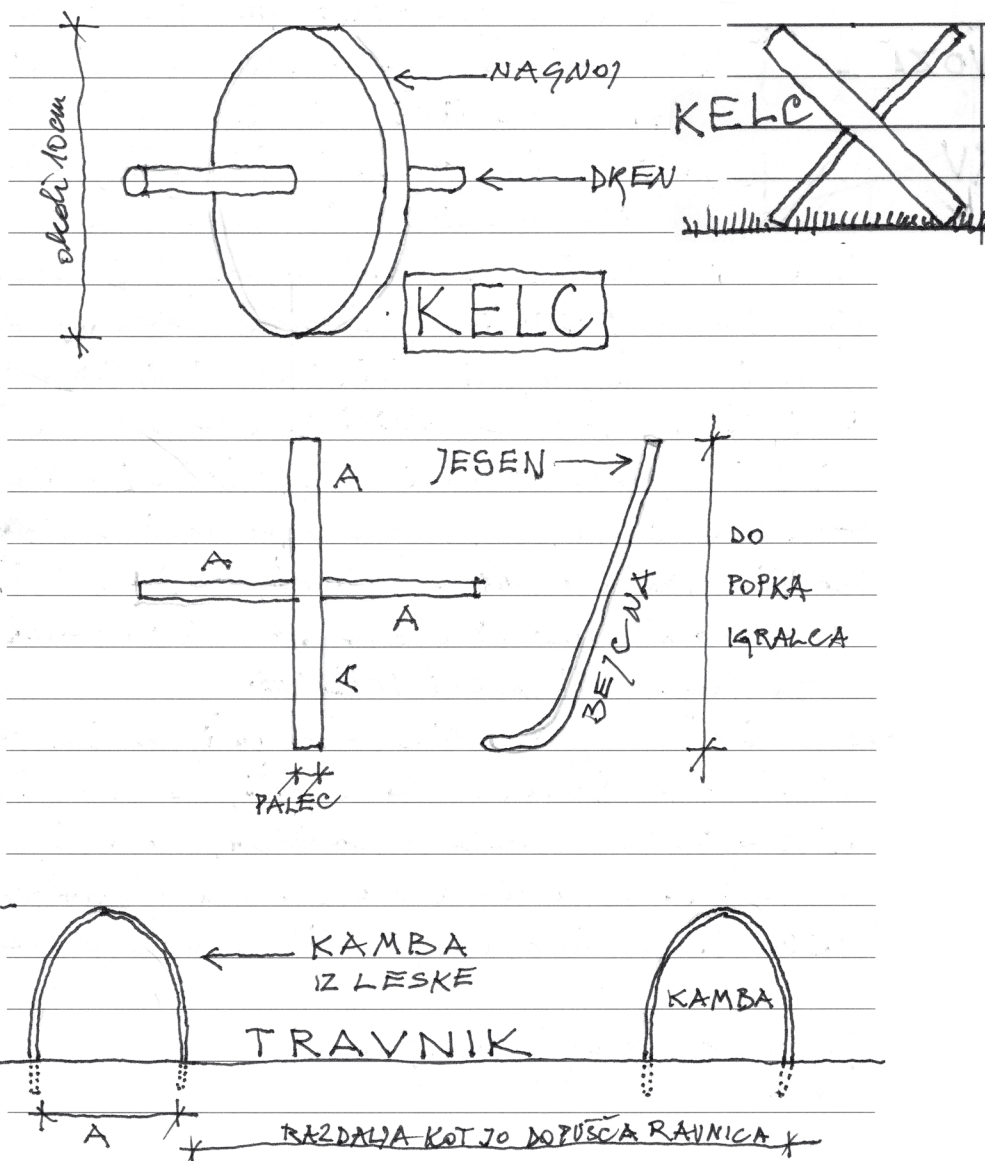 okoli 10 cm
NAGNOJ
DREN
KELC
KELC
A
A
A
A
PALEC
JESEN
BEJC-NA
DO
POPKA
IGRALCA
KAMBA
IZ LESKE
KAMBA
TRAVNIK
A
RAZDALJA KOT JO DOPUŠČA RAVNICA